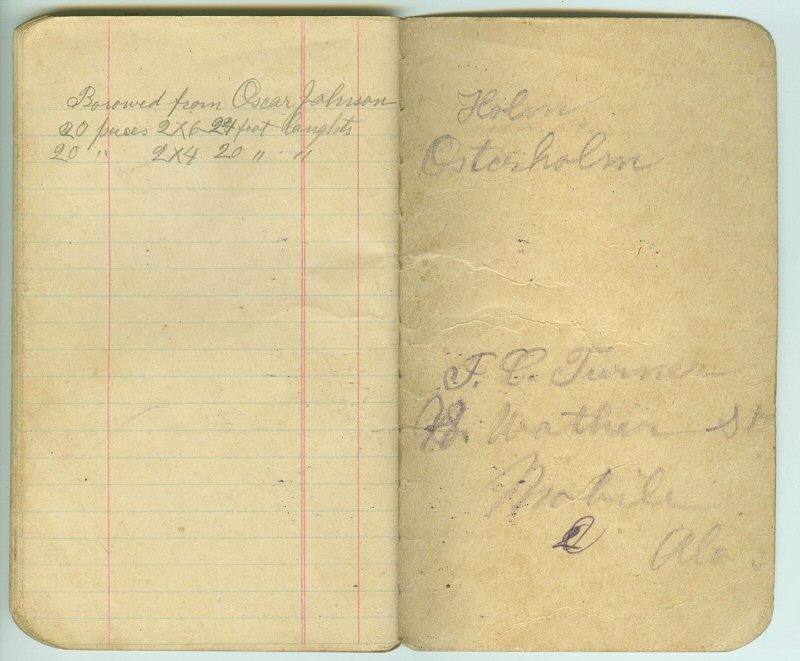 Borowed from Oscar Johnson
20 pieces 2x6-24 foot langhts
20 " 2x4 20 " "
Holm
Osterholm
F. C. Turner
Wather St
Mobile
Ala.